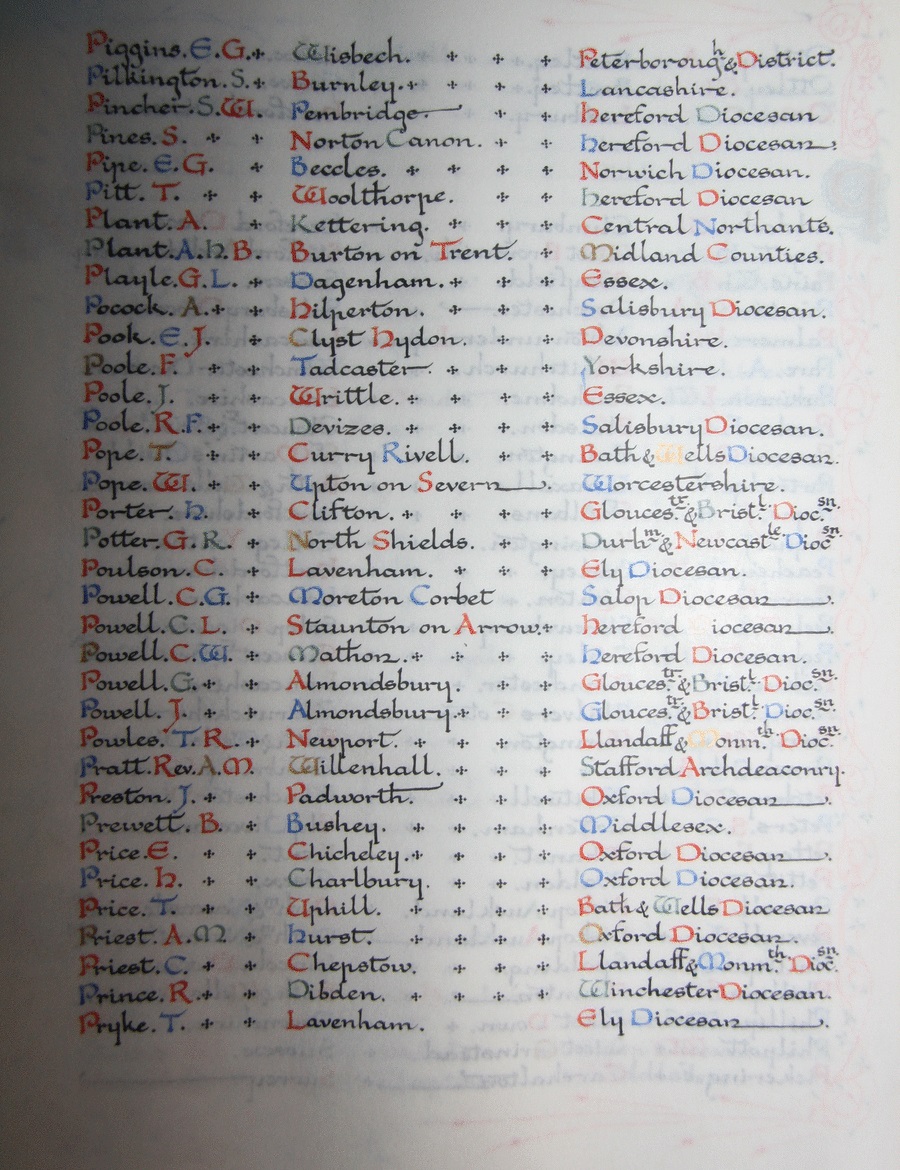 Piggins. E. G. + Wisbech. + + + Peterborough & District.
Pilkington. S. + Burnley. + + + + Lancashire.
Pincher. S. W. Pembridge. + + Hereford Diocesan
Pines. S. + + Norton Canon. + + Hereford Diocesan.
Pipe. E. G. + Beccles. + + + + Norwich Diocesan.
Pitt. T. + + Woolthorpe. + + + Hereford Diocesan
Plant. A. + Kettering. + + + + Central Northants.
Plant. A. H. B. Burton on Trent. + Midland Counties.
Playle. G. L. + Dagenham. + + + Essex.
Pocock. A. + + Hilperton. + + + Salisbury Diocesan.
Pook. E. J. + Clyst Hydon. + + + Devonshire.
Poole. F. + + Tadcaster. + + + Yorkshire.
Poole. J. + + Writtle. + + + + Essex.
Poole. R. F. + + Devizes. + + + + Salisbury Diocesan.
Pope. T. + + Curry Rivell. + + Bath & Wells Diocesan.
Pope. W. + + Upton on Severn. Worcestershire.
Porter. H. + Clifton. + + + + Glouces.tr. & Brist.l. Dioc.sn.
Potter. G. R. + North Shields. + + Durh.m & Newcast.le. Diocsn.
Poulson. C. + Lavenham. + + + Ely Diocesan.
Powell. C. G. + Moreton Corbet Salop Diocesan.
Powell. C. L. + Staunton on Arrow. + Hereford iocesan.
Powell. C. W. + Mathon. + + + + Hereford Diocesan.
Powell. G. + + Almondsbury. + + Glouces.tr. & Brist.l. Dioc.sn.
Powell. J. + + Almondsbury. + + + Glouces.tr. & Brist.l. Dioc.sn.
Powles. T. R. + Newport. + + + + Llandaff & Monm.th. Dioc.sn.
Pratt. Rev. A. M. Willenhall. + + + Stafford Archdeaconry.
Preston. J. + + Padworth. + + Oxford Diocesan.
Prewett. B. + Bushey. + + + + Middlesex.
Price. E. + + Chicheley. + + + + Oxford Diocesan.
Price. H. + + Charlbury. + + + Oxford Diocesan.
Price. T. + + Uphill. + + + + Bath & Wells Diocesan
Priest. A. M. + Hurst. + + + + Oxford Diocesan.
Priest. C. + + Chepstow. + + + Llandaff & Monm.th. Dioc.sn.
Prince. R. + + Dibden. + + + + Winchester Diocesan.
Pryke. T. + + Lavenham. + + + Ely Diocesan.